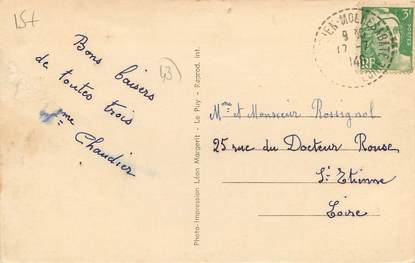 157
Bons baisers
de toutes trois
Mme Chaudier
43)
Photo-Impression Léon Margerit - Le Puy - Reprod. int.
9
17
3F
POSTES
RF
Mme et Monsieur Rossignol
25 rue du Docteur Rouse
St-Etienne
Loire